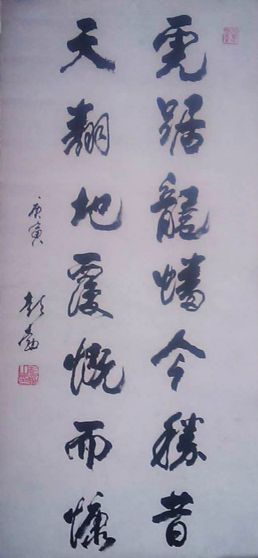 虎踞龍蟠今勝昔
天翻地覆慨而慷
庚寅